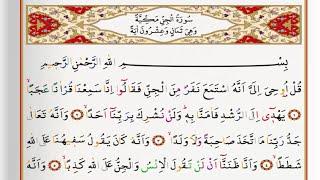 سُورَةُ الْجِنِّ مَكِّيَّةٌ
وَهِيَ ثَمَانٍ وَعِشْرُونَ آيَةً
بِسْمِ اللهِ الرَّحْمٰنِ الرَّحِيمِ
قُلْ أُوحِيَ إِلَيَّ أَنَّهُ اسْتَمَعَ نَفَرٌ مِنَ الْجِنِّ فَقَالُوا إِنَّا سَمِعْنَا قُرْاٰنًا عَجَبًا
يَهْدِي إِلَى الرُّشْدِ فَاٰمَنَّا بِهِ وَلَنْ نُشْرِكَ بِرَبِّنَا أَحَدًا وَأَنَّهُ تَعَالٰى
جَدُّ رَبِّنَا مَا اتَّخَذَ صَاحِبَةً وَلَا وَلَدًا وَأَنَّهُ كَانَ يَقُولُ سَفِيهُنَا عَلَى اللهِ
شَطَطًا وَأَنَّا ظَنَنَّا أَنْ لَنْ تَقُولَ الْاِنْسُ وَالْجِنُّ عَلَى اللهِ كَذِبًا وَأَنَّهُ